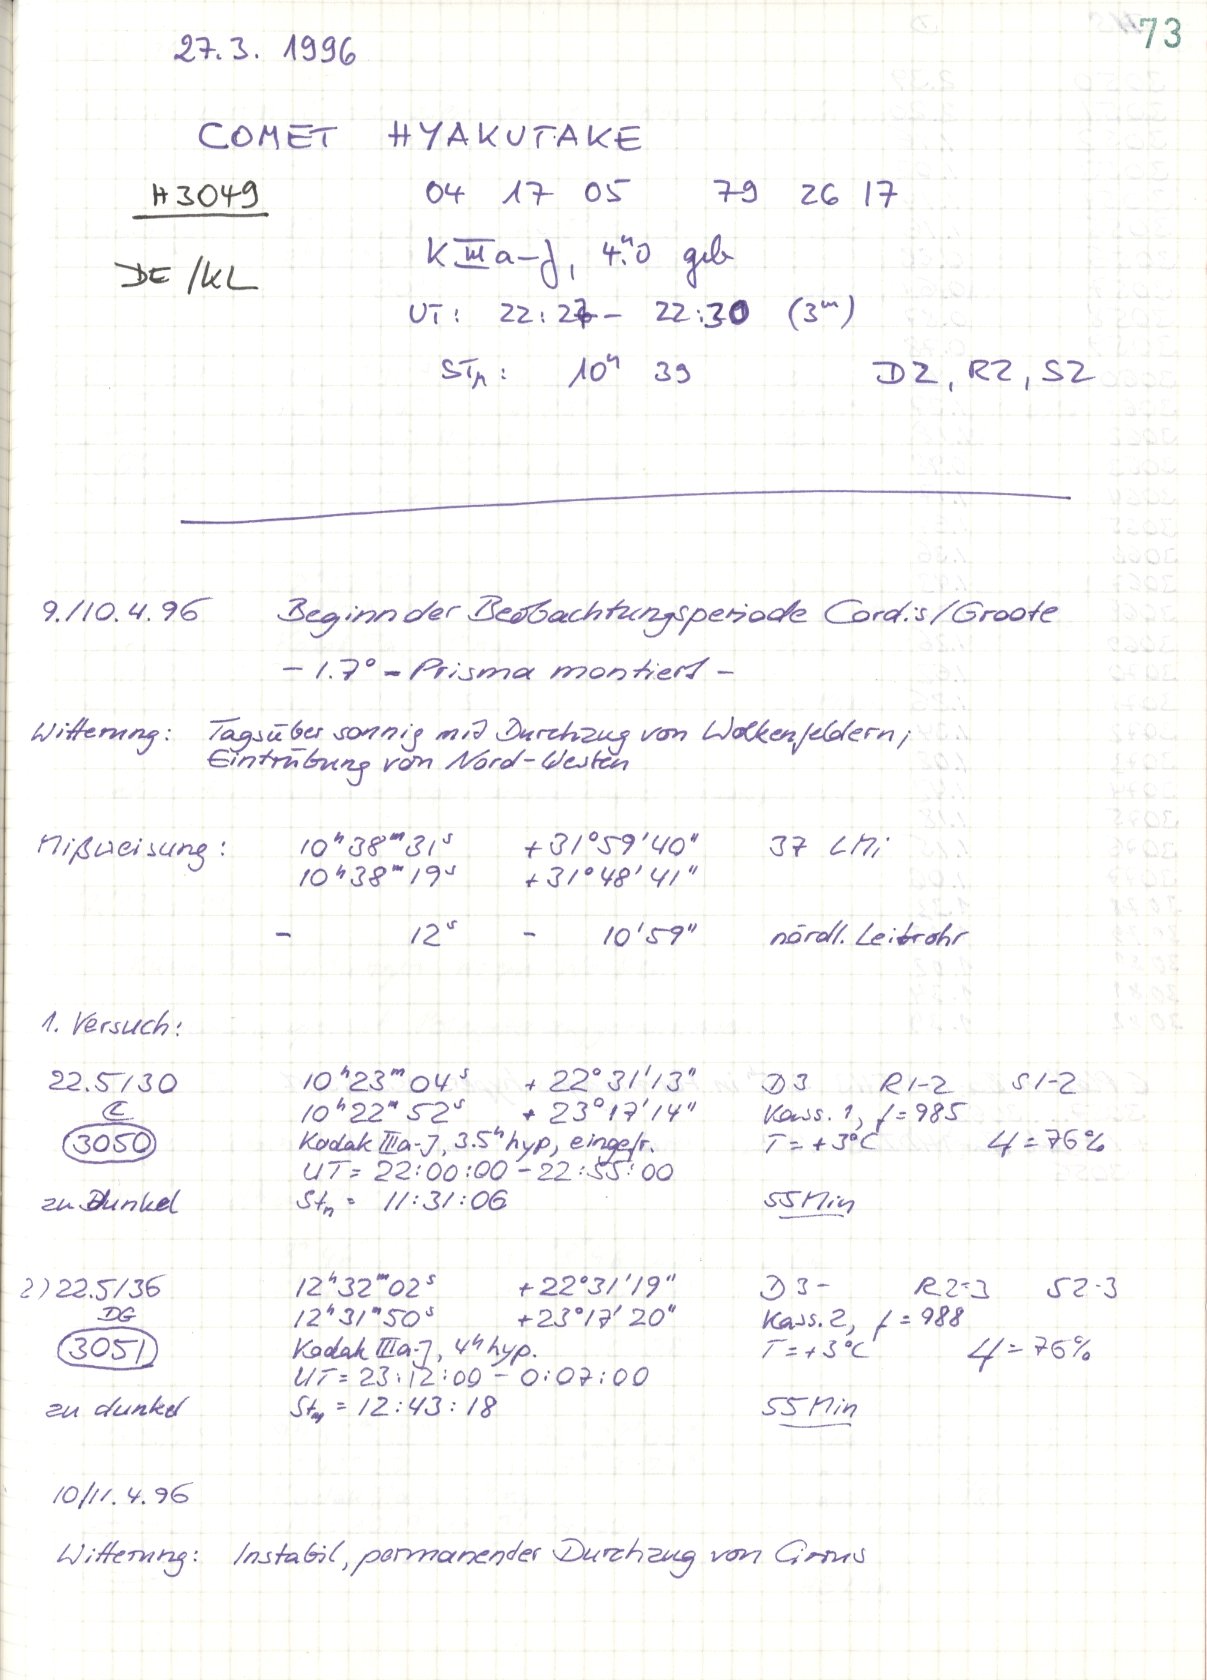 73
27.3. 1996
COMET HYAKUTAKE
H3049 04 17 05 79 26 17
DE/KL K III a-J, 4.ʰ0 geb
UT: 22:27 - 22:30 (3ᵐ)
STₙ: 10ʰ 39 D2, R2, S2
9./10.4.96 Beginn der Beobachtungsperiode Cordis/Groote
- 1.7° - Prisma montiert -
Witterung: Tagsüber sonnig mit Durchzug von Wolkenfeldern;
Eintrübung von Nord-Westen
Mißweisung: 10ʰ38ᵐ31ˢ +31°59'40" 37 LMi
10ʰ38ᵐ19ˢ +31°48'41"
- 12ˢ - 10'59" nördl. Leitrohr
1. Versuch:
22.5/30 10ʰ23ᵐ04ˢ +22°31'13" D3 R1-2 S1-2
C 10ʰ22ᵐ52ˢ +23°17'14" Kass. 1, f=985
3050 Kodak IIIa-J, 3.5ʰ hyp, eingefr. T=+3°C 4=76%
UT= 22:00:00 - 22:55:00
zu Dunkel Stₙ = 11:31:06 55 Min
2) 22.5/36 12ʰ32ᵐ02ˢ +22°31'19" D3- R2-3 S2-3
DG 12ʰ31ᵐ50ˢ +23°17'20" Kass. 2, f=988
3051 Kodak IIIa-J, 4ʰ hyp. T=+3°C 4=76%
UT= 23:12:00 - 0:07:00
zu dunkel Stₘ = 12:43:18 55 Min
10/11.4.96
Witterung: Instabil, permanenter Durchzug von Cirrus